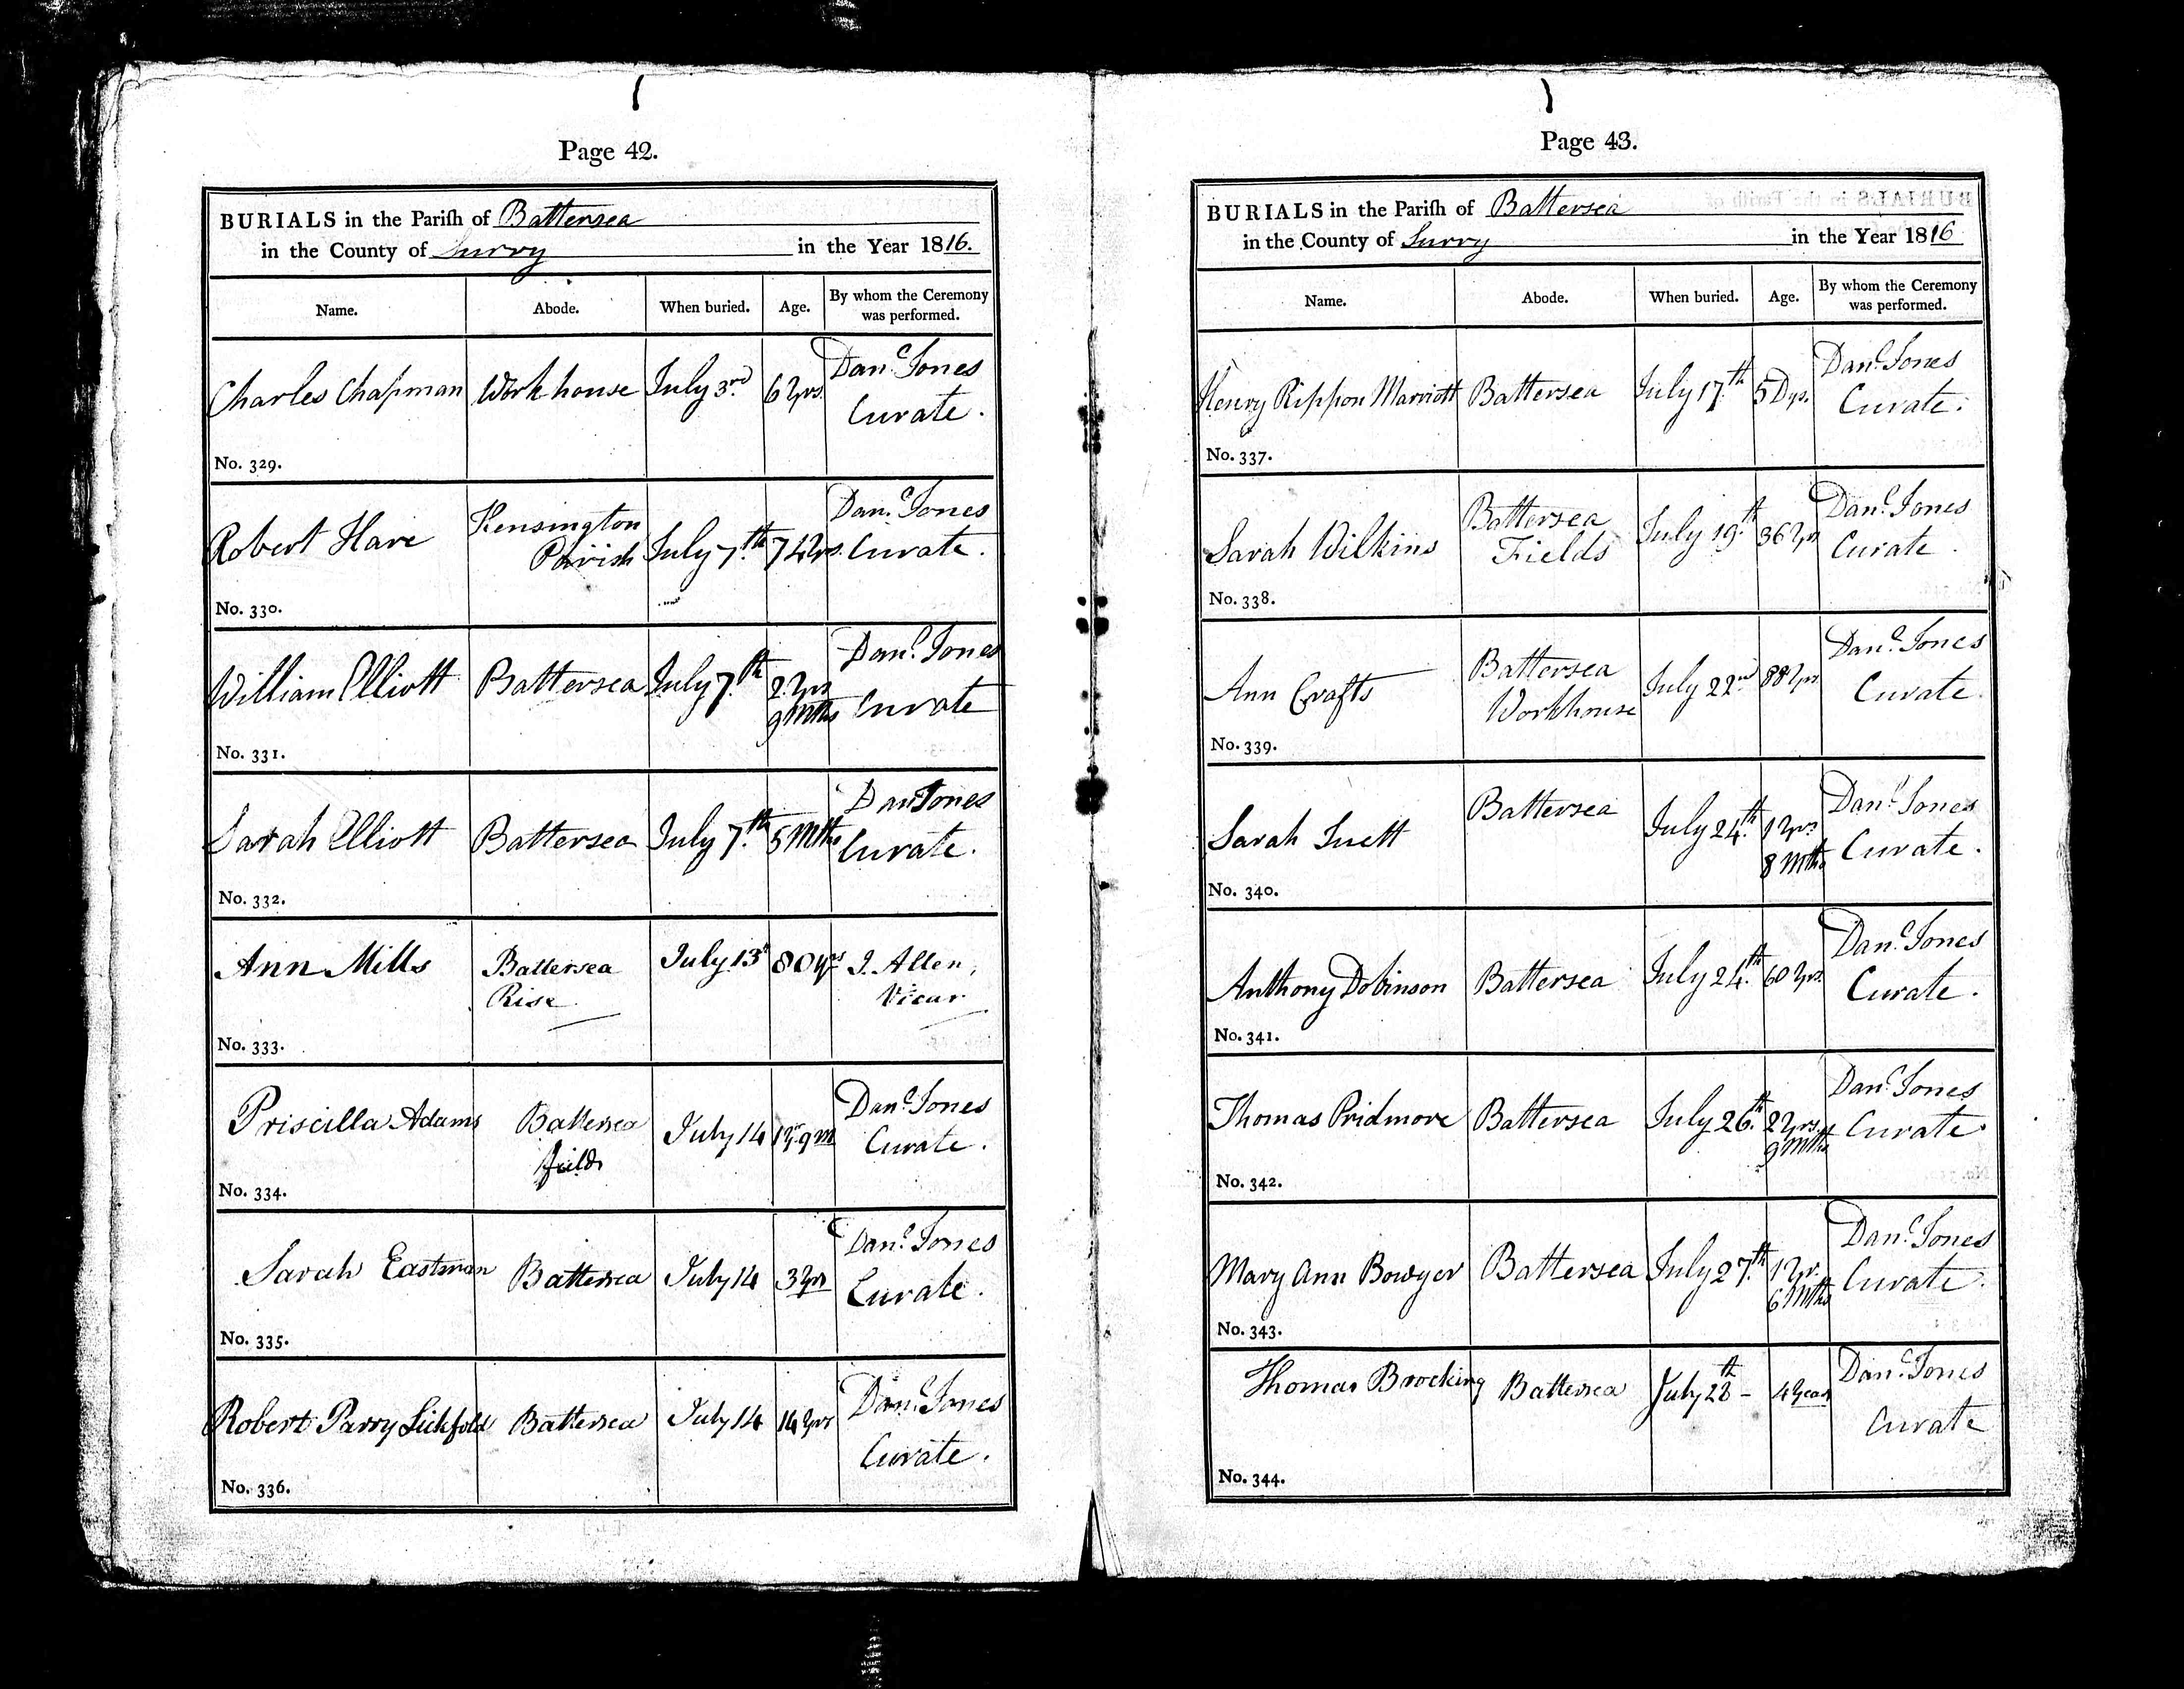 Page 42.
BURIALS in the Parish of Battersea
in the County of Surry in the Year 1816.
Name. Abode. When buried. Age. By whom the Ceremony was performed.
Charles Chapman Workhouse July 3rd 6 yrs. Danl. Jones
Curate.
No. 329.
Robert Hare Kensington Parish July 7th. 74 yrs. Danl. Jones
Curate.
No. 330.
William Elliott Battersea July 7th. 2 yrs 9 Mths Danl. Jones
Curate
No. 331.
Sarah Elliott Battersea July 7th. 5 Mths Danl Jones
Curate.
No. 332.
Ann Mills Battersea Rise July 13th 80 yrs J. Allen,
Vicar
No. 333.
Priscilla Adams Battersea fields July 14 1 yr 9 m Danl. Jones
Curate.
No. 334.
Sarah Eastman Battersea July 14 3 yrs Danl. Jones
Curate.
No. 335.
Robert Parry Lickfold Battersea July 14 14 yrs Danl. Jones
Curate.
No. 336.
Page 43.
BURIALS in the Parish of Battersea
in the County of Surry in the Year 1816
Name. Abode. When buried. Age. By whom the Ceremony was performed.
Henry Rippon Marriott Battersea July 17th 5 Dys. Danl. Jones
Curate.
No. 337.
Sarah Wilkins Battersea Fields July 19th. 36 yrs Danl. Jones
Curate.
No. 338.
Ann Crafts Battersea Workhouse July 22nd 88 yrs Danl. Jones
Curate.
No. 339.
Sarah Battersea July 24th. 1 yrs 8 Mths Danl. Jones
Curate.
No. 340.
Anthony Dobinson Battersea July 24th. 60 yrs. Danl. Jones
Curate.
No. 341.
Thomas Pridmore Battersea July 26th. 2 yrs. 9 Mths Danl. Jones
Curate
No. 342.
Mary Ann Bowyer Battersea July 27th. 1 yr. 6 Mths Danl. Jones
Curate.
No. 343.
Thomas Brocking Battersea July 28th - 4 years Danl. Jones
Curate
No. 344.